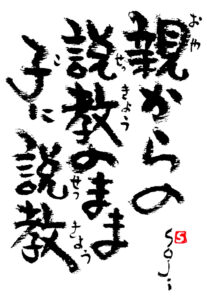 親からの
説教のまま
子に説教
おや
せっきょう
こ
せっきょう
Soji
S